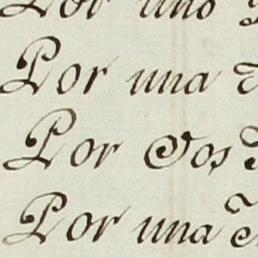 Por uno
Por una
Por dos
Por una